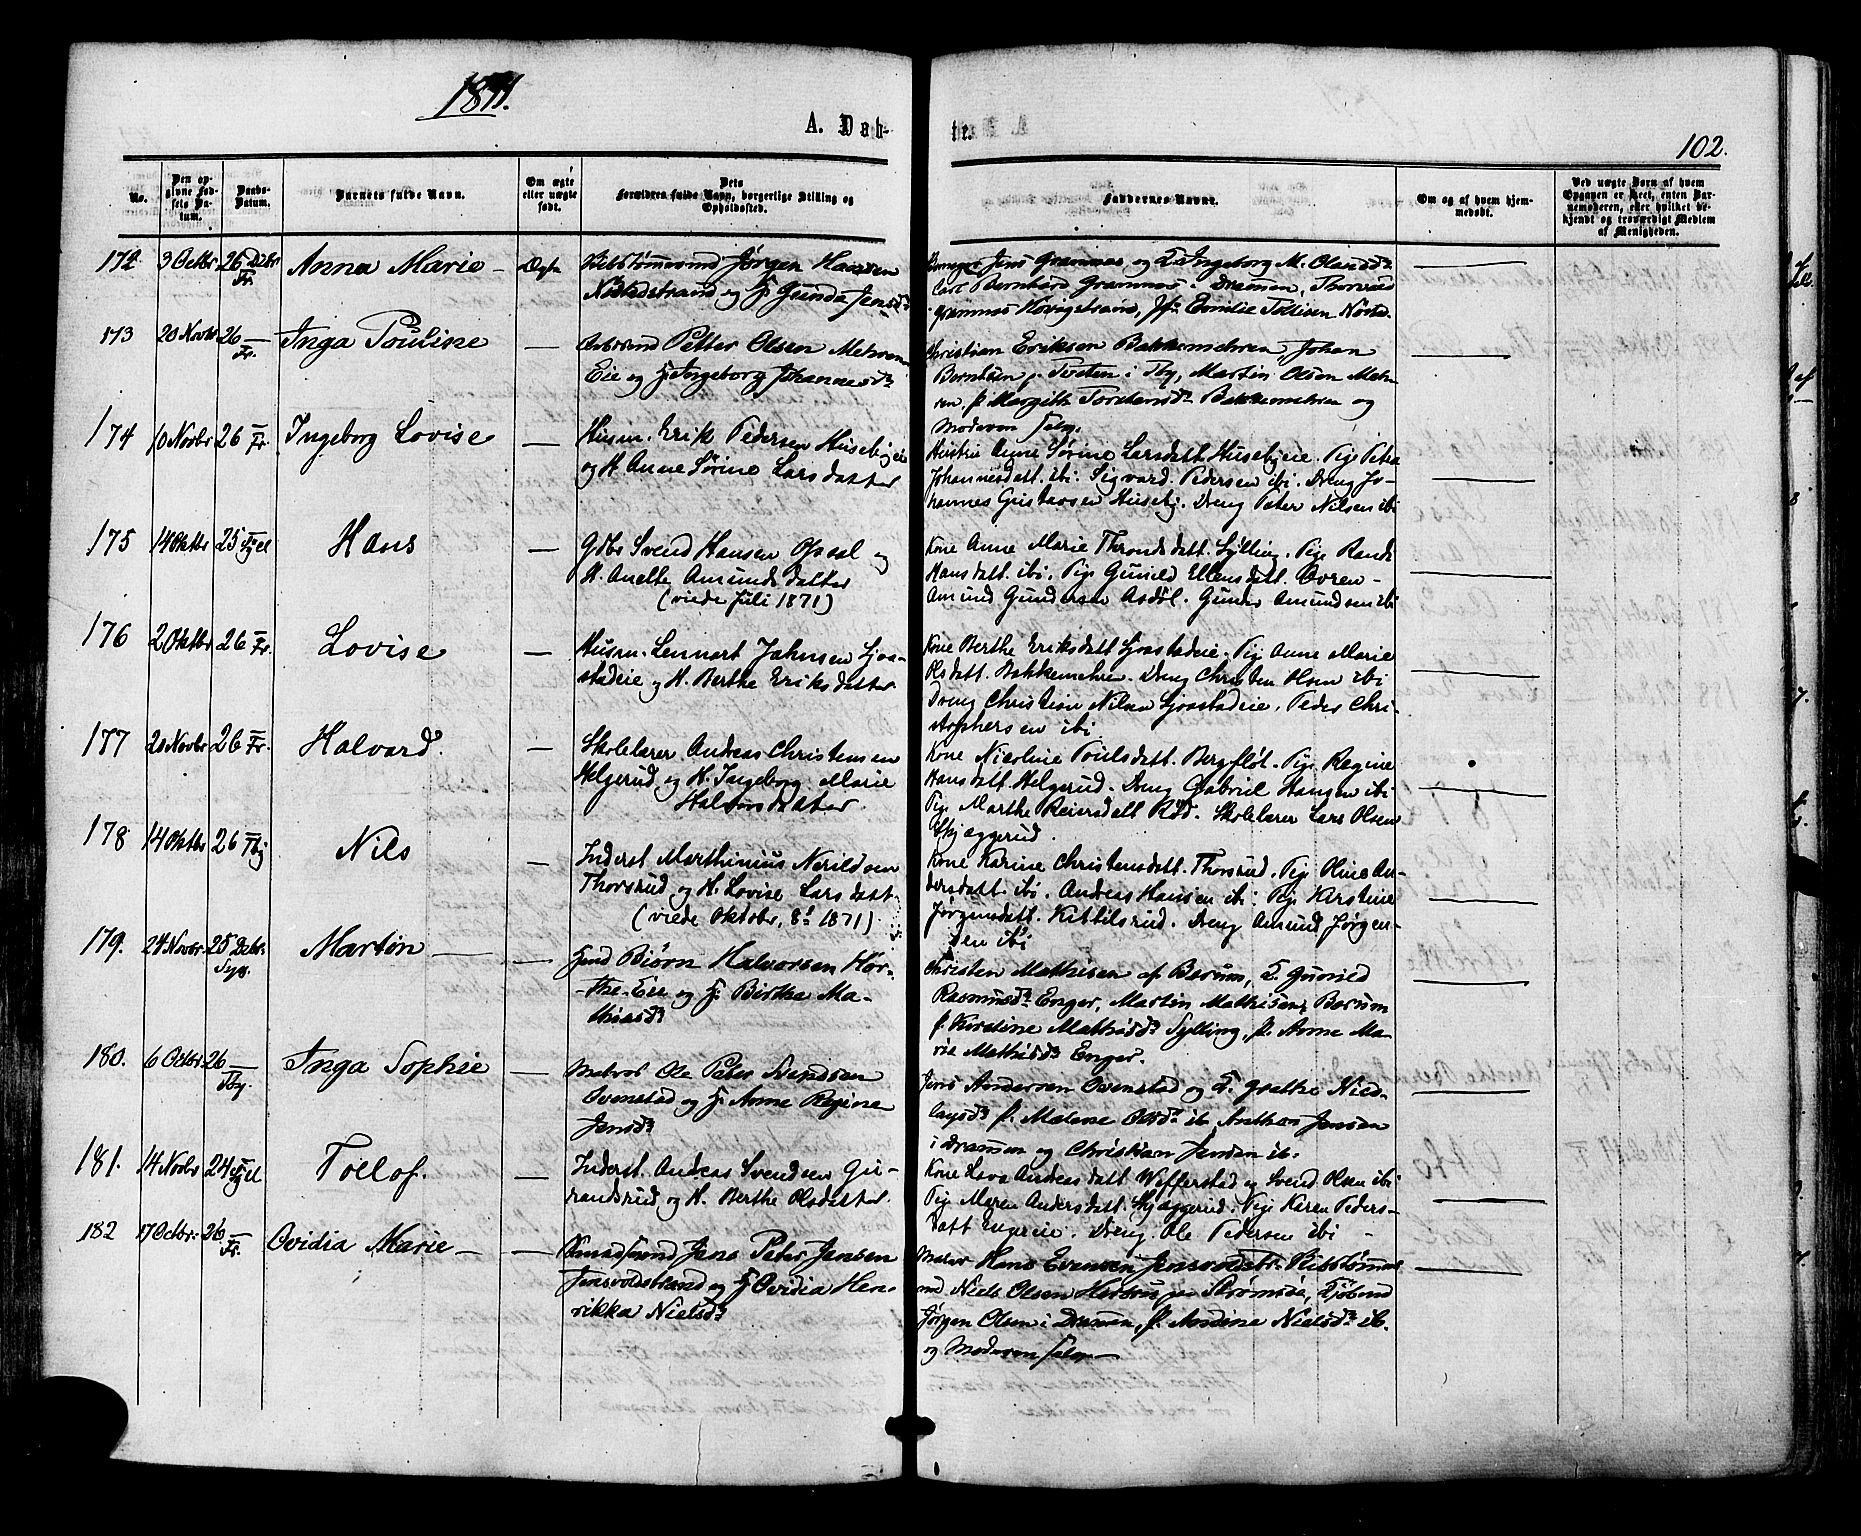 1871.
A. Døb-
te.
102.
No.
Den opgivne Fødsels Datum.
Daabs-Datum.
Barnets fulde Navn.
Om ægte eller uægte født.
Dets Forældres fulde Navn, borgerlige Stilling og Opholdssted.
Faddernes Navne.
Om og af hvem hjemmedøbt.
Ved uægte Børn af hvem Opgaven er skeet, enten Barnemoderen, eller hvilket bekjendt og troværdigt Medlem af Menigheden.
172. 3 Octbr 26 Fr. Anna Marie – Ægte
Jørgen Hansen
og H. Gunda Jensd.
Jens Gramnæs og H. Ingeborg M. Olsensd.
Carl Bernhard Gramnæs i Dramen, Thorvald
Emilie Tollisen
173 20 Novbr 26 — Fr. Inga Pouline —
Petter Olsen Mehren
Eie og H. Ingeborg Johannesd.
Christian Eriksen Bakkemehren, Johan
Berntsen i Thy, Martin Olsen Meh-
ren, p. Margith Torstensd. Bakkemehren og
Moderen selv.
174 10 Novbr 26 — Fr. Ingeborg Lovise —
Husm. Erik Pedersen Husebyeie
og H. Anne Sørine Larsdatter
Hustru Anne Sørine Larsdatt. Husebyeie. Pige Petra
Johannesdatt. ibi. Sigvard Pedersen ibi. Dreng Jo-
hannes Gustavsen Huseby. Dreng Peter Nilsen ibi
175 14 Oktbr 25 Sjel Hans —
Gdbr Svend Hansen Opsal og
H. Anette Amundsdatter
(viede Juli 1871)
Kone Anne Marie Throndsdatt. Sylling. Pige Randi
Hansdatt. ibi. Pige Gunild Ellensdatt. Overen –
Amund Gundersen Asdøl. Gunder Amundsen ibi
176 2 Oktbr 26 — Fr. Lovise —
Husm. Lennart Jahnsen Sjaa-
stadeie og H. Berthe Eriksdatter
Kone Berthe Eriksdatt Sjaastadeie. Pige Anne Marie
Olsdatt. Bakkemehren. Dreng Christen Olsen ibi
Dreng Christian Nilsen Sjaastadeie. Peder Chri-
stophersen ibi
177 20 Novbr 26 — Fr. Halvard. —
Skolelærer Andreas Christensen
Helgerud og H. Ingeborg Marie
Halvorsdatter.
Kone Nicoline Poulsdatt. Bergfløt. Pige Regine
Hansdatt. Helgerud. Dreng Gabriel Hansen ibi
Pige Marthe Reiersdatt Rød. Skolelærer Lars Olsen
Skjæggerud.
178 14 Oktbr 26 — Thj Nils —
Inderst Marthinius Nerildsen
Thorsrud og H. Lovise Larsdatt
(viede Oktobr. 8d 1871)
Kone Karine Christensdatt. Thorsrud. Pige Oline An-
dersdatt. ibi. Andreas Hansen ibi. Pige Kirstine
Jørgensdatt. Kittilsrud. Dreng Amund Jørgen-
sen ibi
179. 24 Novbr. 25 Debr. Martin —
Biørn Halvorsen Hør-
the-Eie og H. Birthe Ma-
thiasd.
Christen Mathisen af Bærum, H. Gunild
Rasmusd. Enger, Martin Mathisen, Bærum
p. Kirstine Mathisd. Sylling, p. Anne Ma-
rie Mathisd. Enger.
180. 6 Octbr 26 — Thj. Inga Sophie —
Matros Ole Peter Svendsen
Ovenstad og H. Anne Regine
Jensd.
Jens Andersen Ovenstad og H. Grethe Nico-
laysd. p. Malene Olsd. ib. Anthon Jensen
i Dramen og Christian Jensen ib.
181. 14 Novbr 24 Sjel Tollof. —
Inderst. Andreas Svendsen Gu-
randsrud og H. Berthe Olsdatter
Andreasdatt Wefferstad og Svend Olsen ibi
Pige Maren Andersdatt. Skjæggerud. Pige Karen Peders-
datt Engereie. Dreng Ole Pedersen ibi –
182 17 Octbr. 26 — Fr. Ovidia Marie – —
Jens Peter Jensen
og H. Ovidia Hen-
rikka Nielsd.
Hans Evensen
Niels Olsen
Jørgen Olsen i Dramen, p. Andine Nielsd. ib.
og Moderen selv —